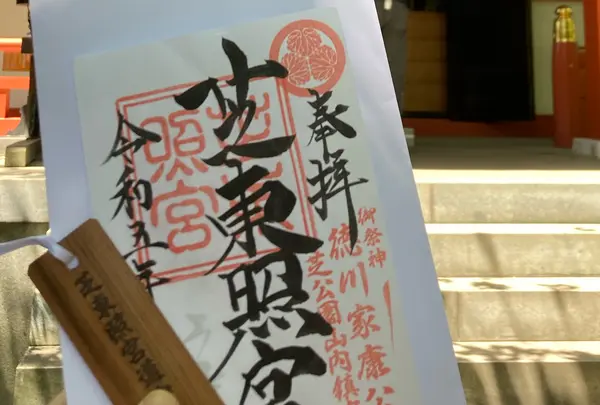 奉拝
芝東照宮
令和五年
御祭神
徳川家康公
芝公園山内鎮
照宮
芝東照宮